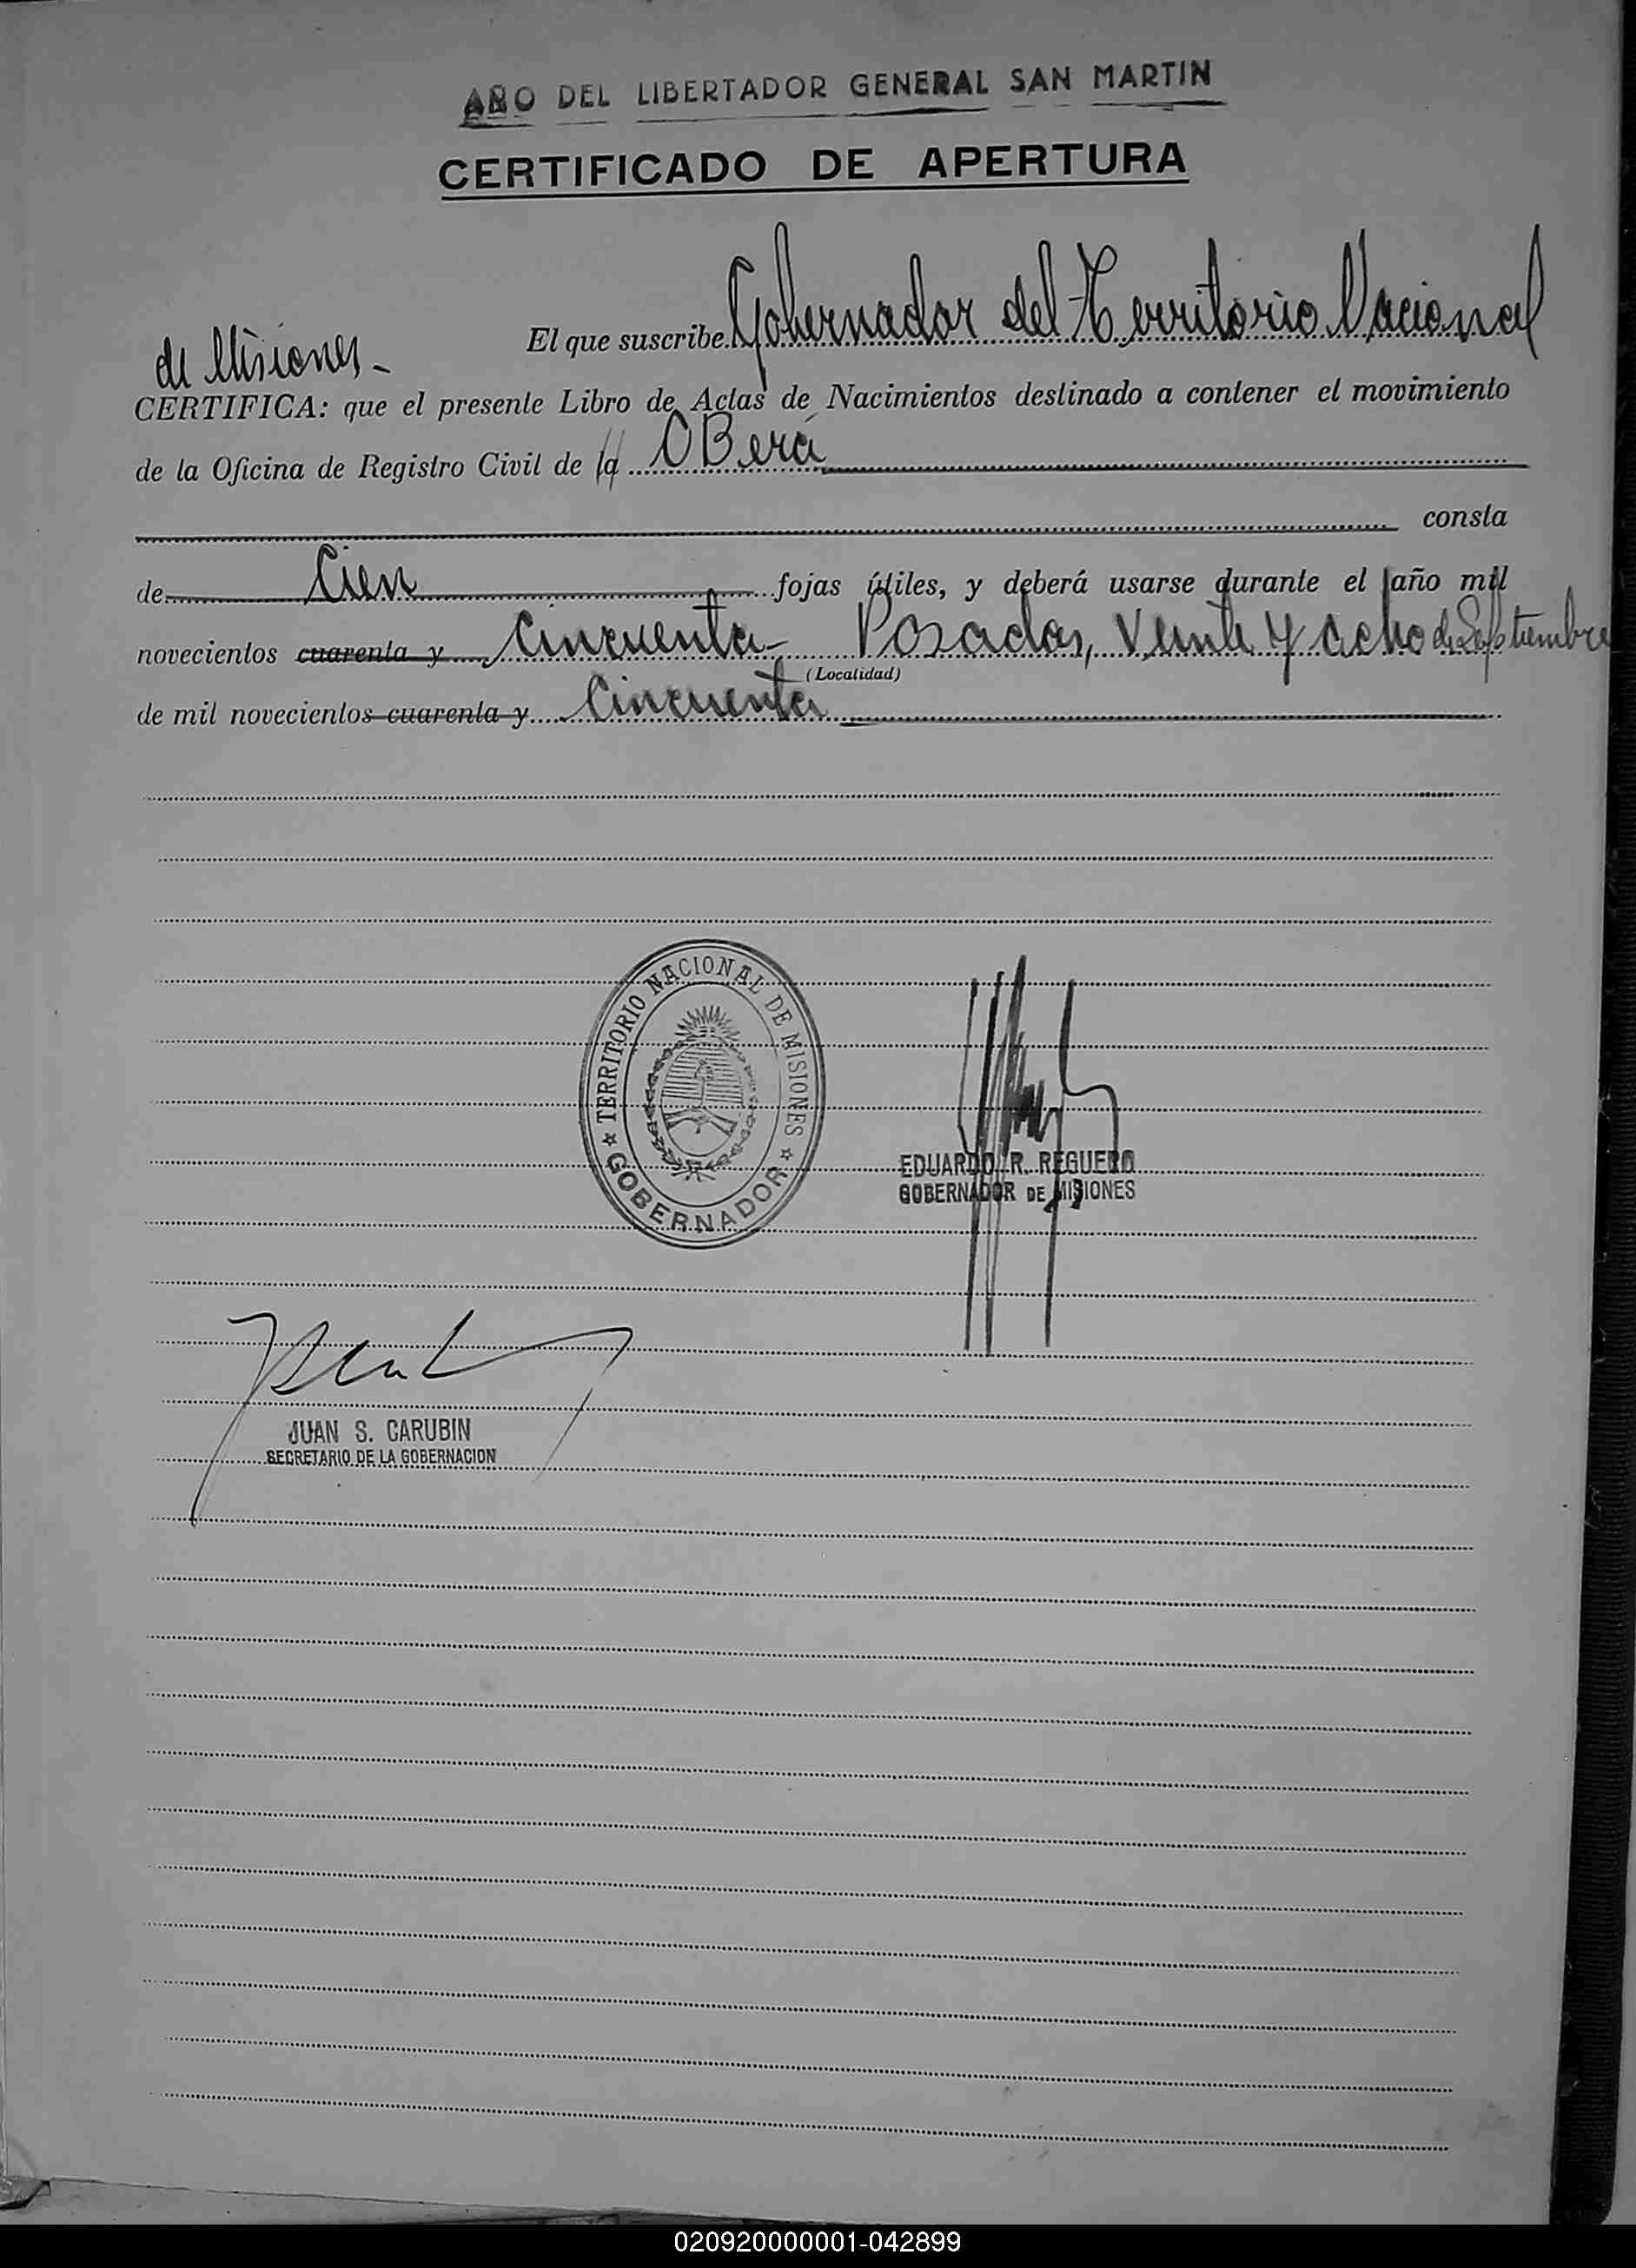 AÑO DEL LIBERTADOR GENERAL SAN MARTIN
CERTIFICADO DE APERTURA
El que suscribe Gobernador del Territorio Nacional
de Misiones.-
CERTIFICA: que el presente Libro de Actas de Nacimientos destinado a contener el movimiento
de la Oficina de Registro Civil de la OBerá
consta
de Cien fojas útiles, y deberá usarse durante el año mil
novecientos cuarenta y Cincuenta- Posadas, Veinte y ocho de Septiembre
(Localidad)
de mil novecientos cuarenta y Cincuenta
TERRITORIO NACIONAL DE MISIONES
GOBERNADOR
EDUARDO R. REGUERO
GOBERNADOR DE MISIONES
JUAN S. CARUBIN
SECRETARIO DE LA GOBERNACION
020920000001-042899